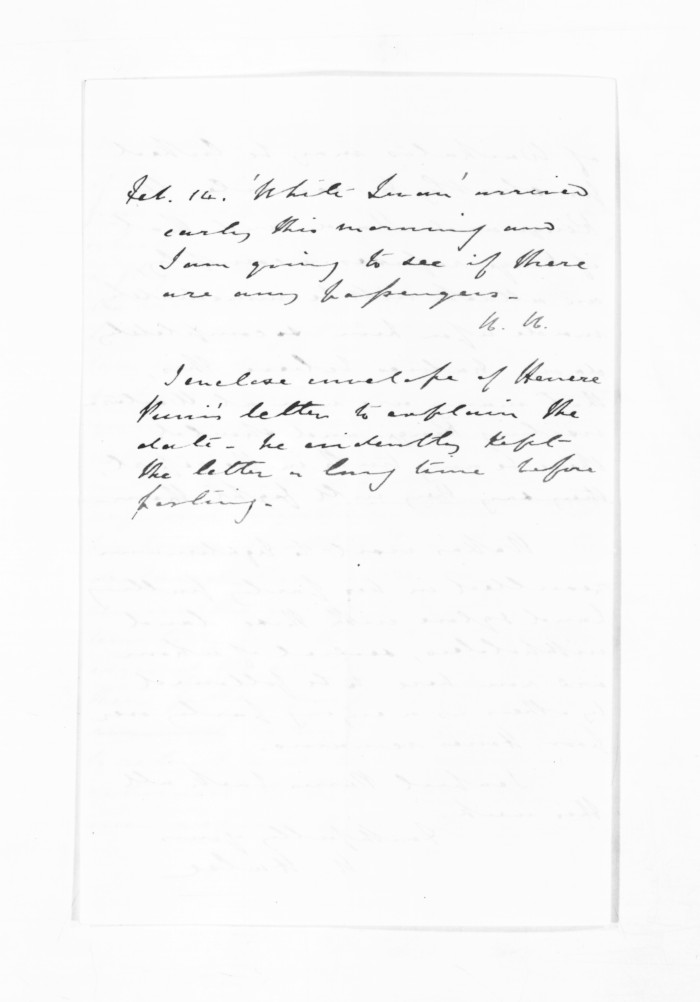 Feb. 14. 'White Swan' arrived
early this morning and
I am going to see if there
are any passengers -
I enclose envelope of Henere
letter to explain the
date - he evidently kept
the letter a long time before
posting -